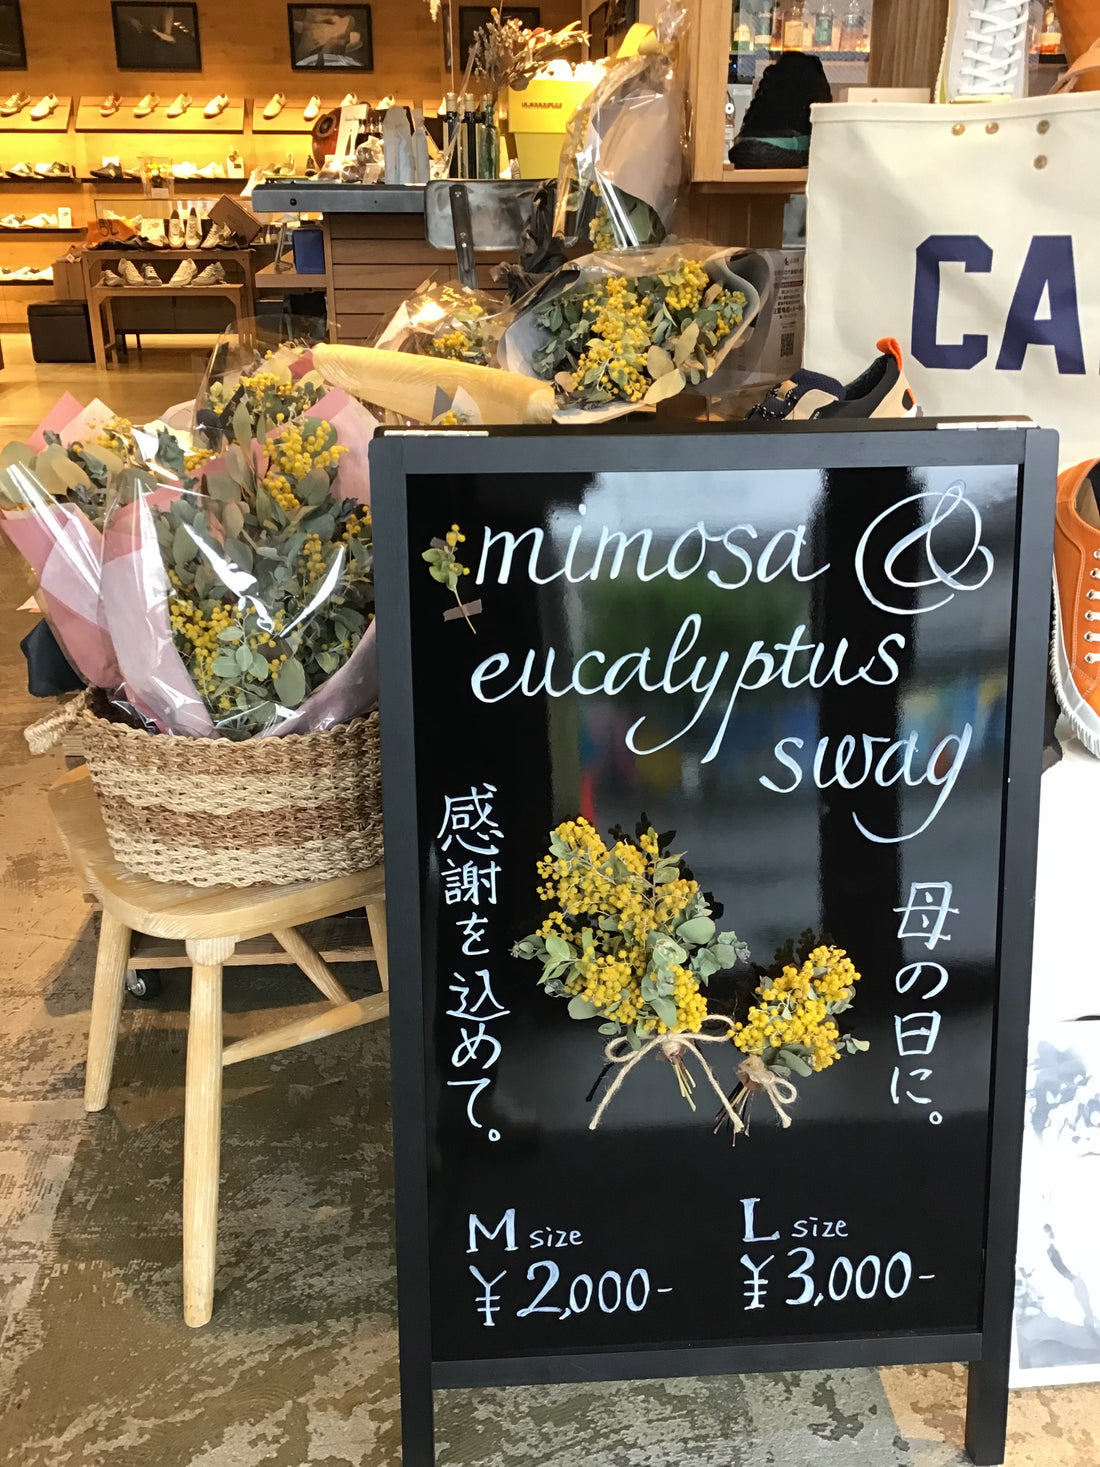 mimosa &
eucalyptus
swag
母の日に。
感謝を込めて。
M size
¥2,000-
L size
¥3,000-
CA